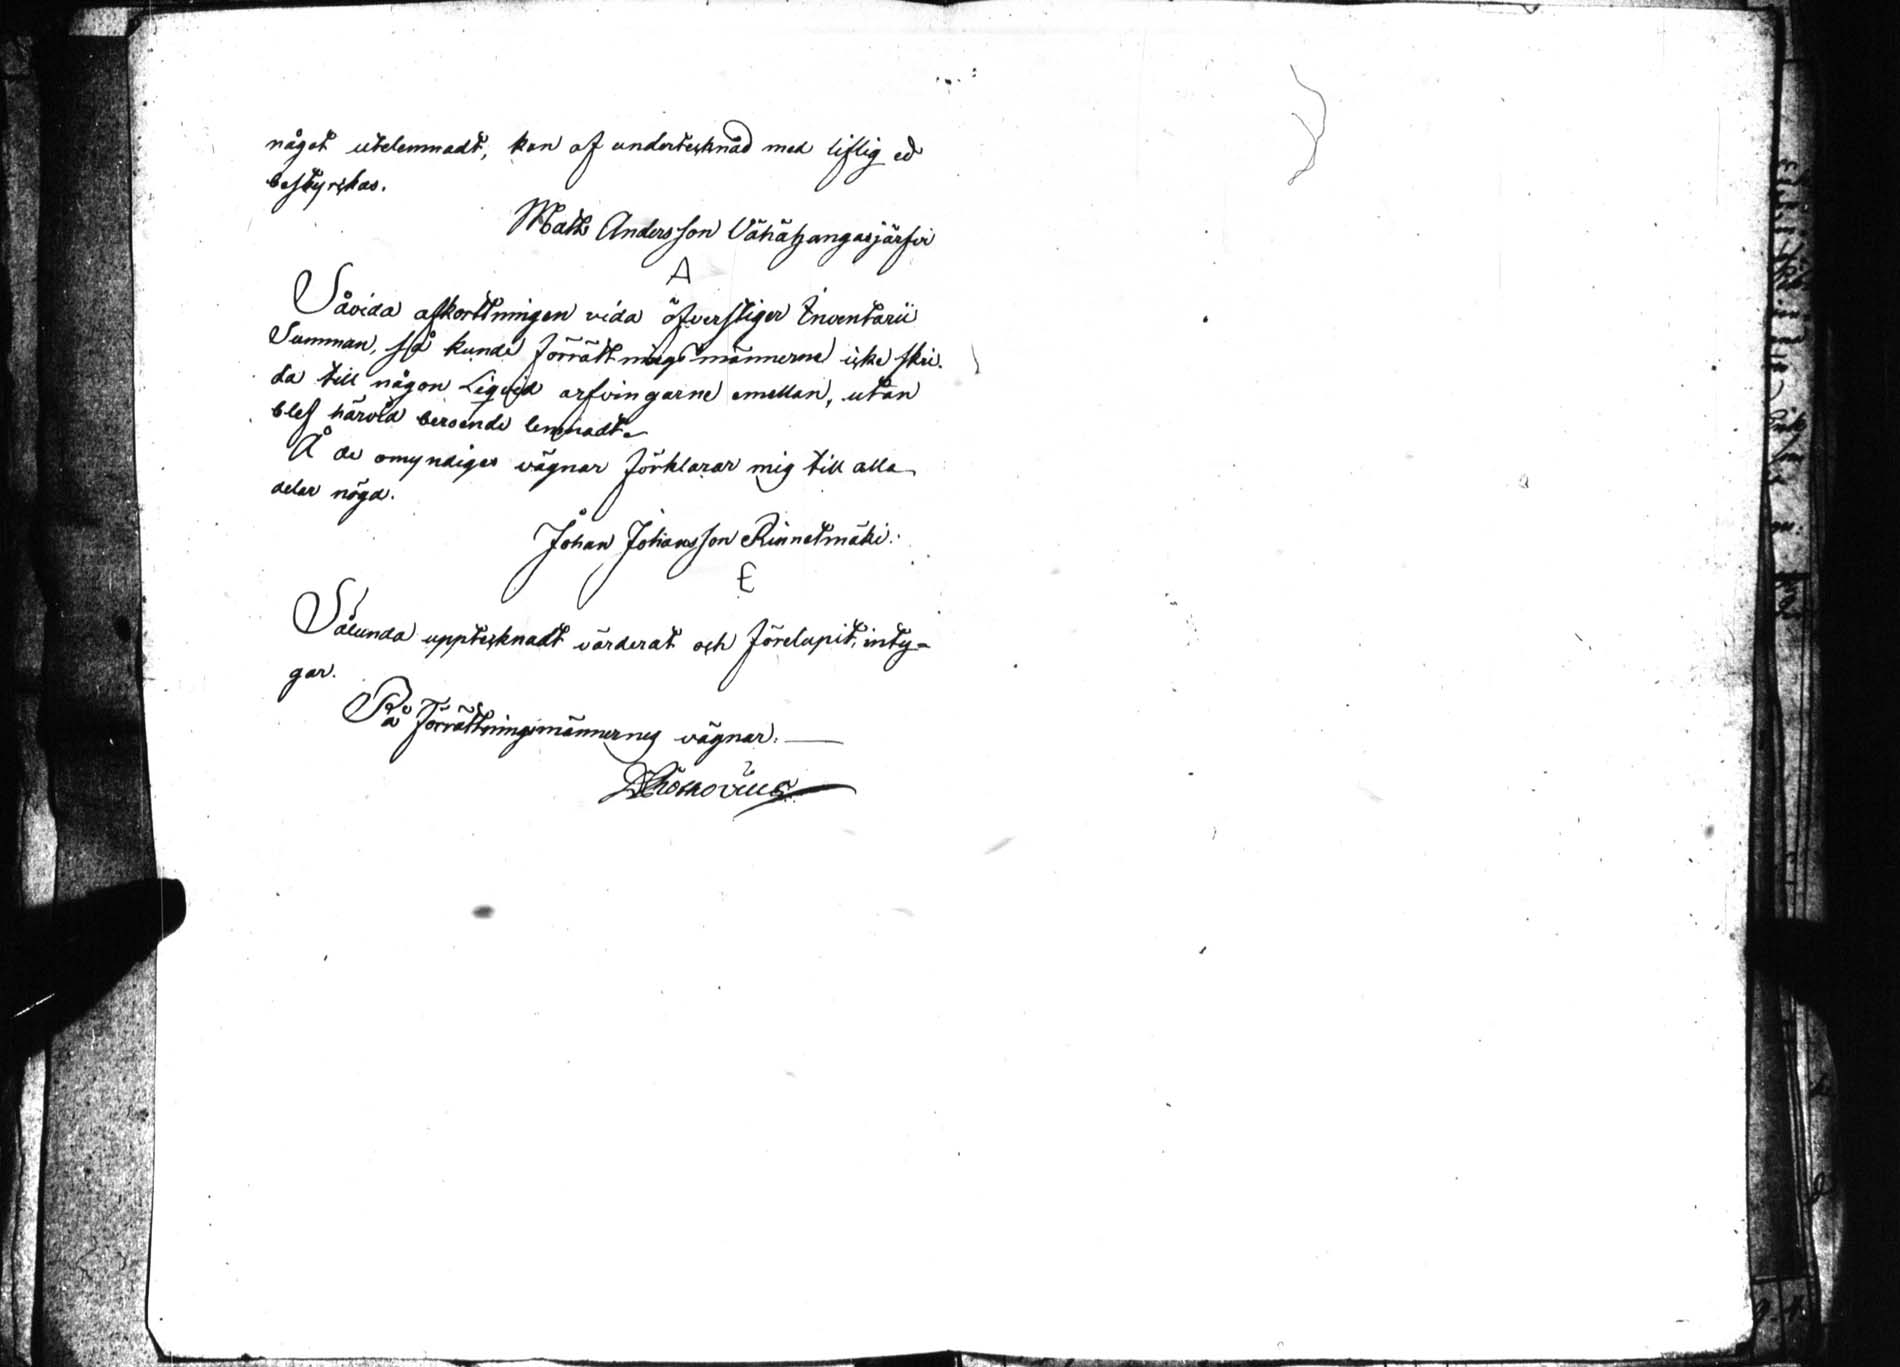 något utelemnadt, kan af undertecknad med liflig ed
bestyrckas.
Matts Andersson Vähäkangasjärfvi
A
Såvida afkorttningen vida öfverstiger Inventarii
Summan, så kunde förrättningsmännerne icke skri-
da till någon Liqvid arfvingarne emellan, utan
blef härvid beroende lemnadt.
Å de omyndiges vägnar förklarar mig till alla
delar nögd.
Johan Johansson Rinnetmäki.
E
Sålunda upptecknadt värderat och förelupit, inty-
gar.
På Förrättningsmännernes vägnar.